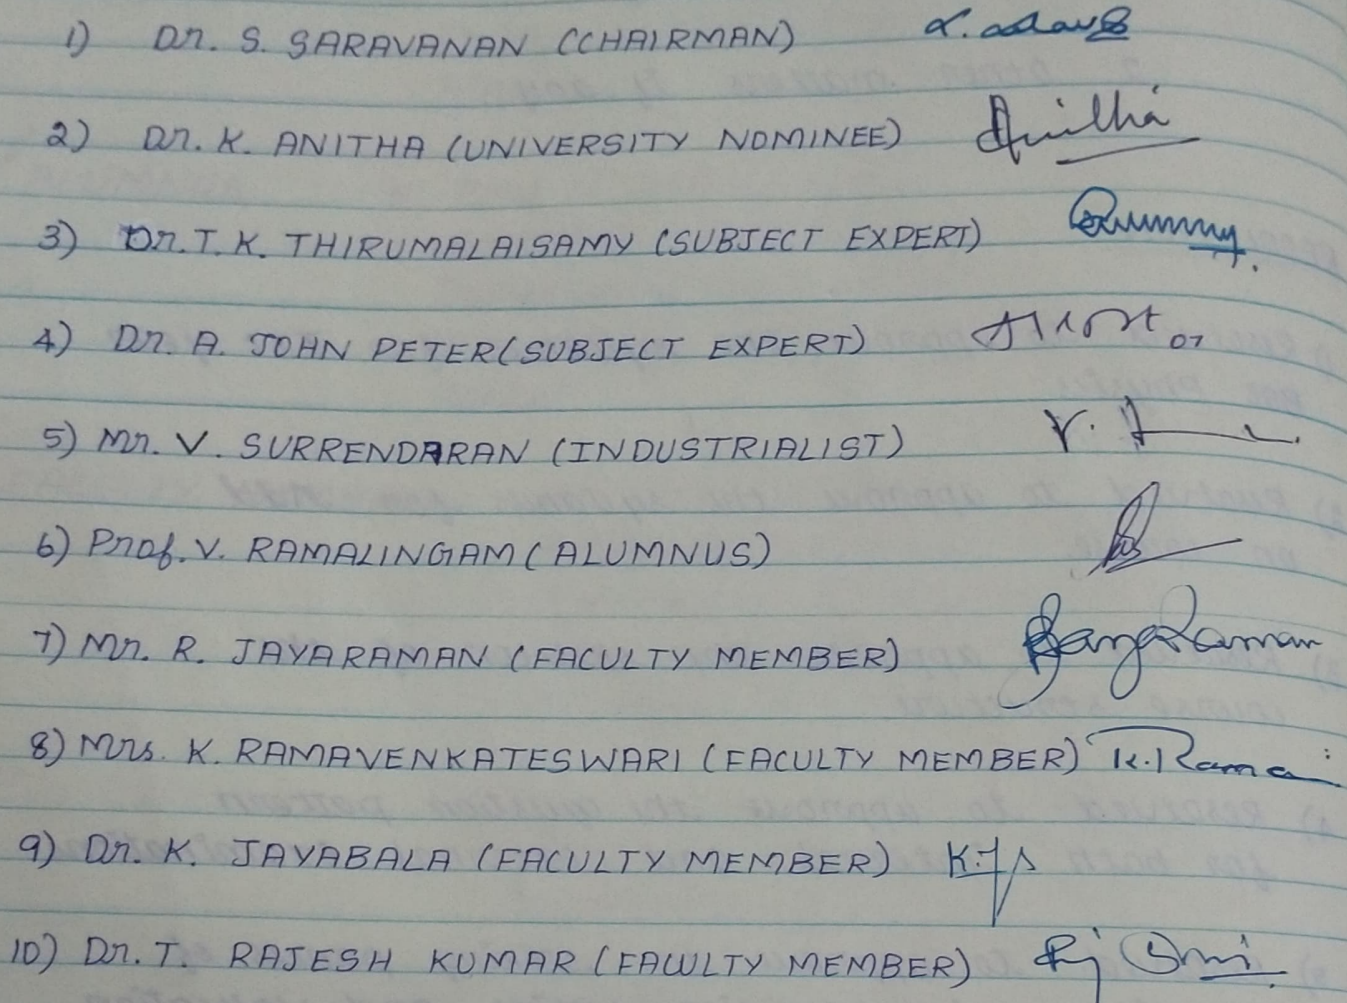 1) Dr. S. SARAVANAN (CHAIRMAN)
2) Dr. K. ANITHA (UNIVERSITY NOMINEE) Anitha
3) Dr. T. K. THIRUMALAISAMY (SUBJECT EXPERT)
4) Dr. A. JOHN PETER (SUBJECT EXPERT)
5) Mr. V. SURRENDARAN (INDUSTRIALIST)
6) Prof. V. RAMALINGAM (ALUMNUS)
7) Mr. R. JAYARAMAN (FACULTY MEMBER)
8) Mrs. K. RAMAVENKATESWARI (FACULTY MEMBER) K. Rama
9) Dr. K. JAYABALA (FACULTY MEMBER)
10) Dr. T. RAJESH KUMAR (FACULTY MEMBER)